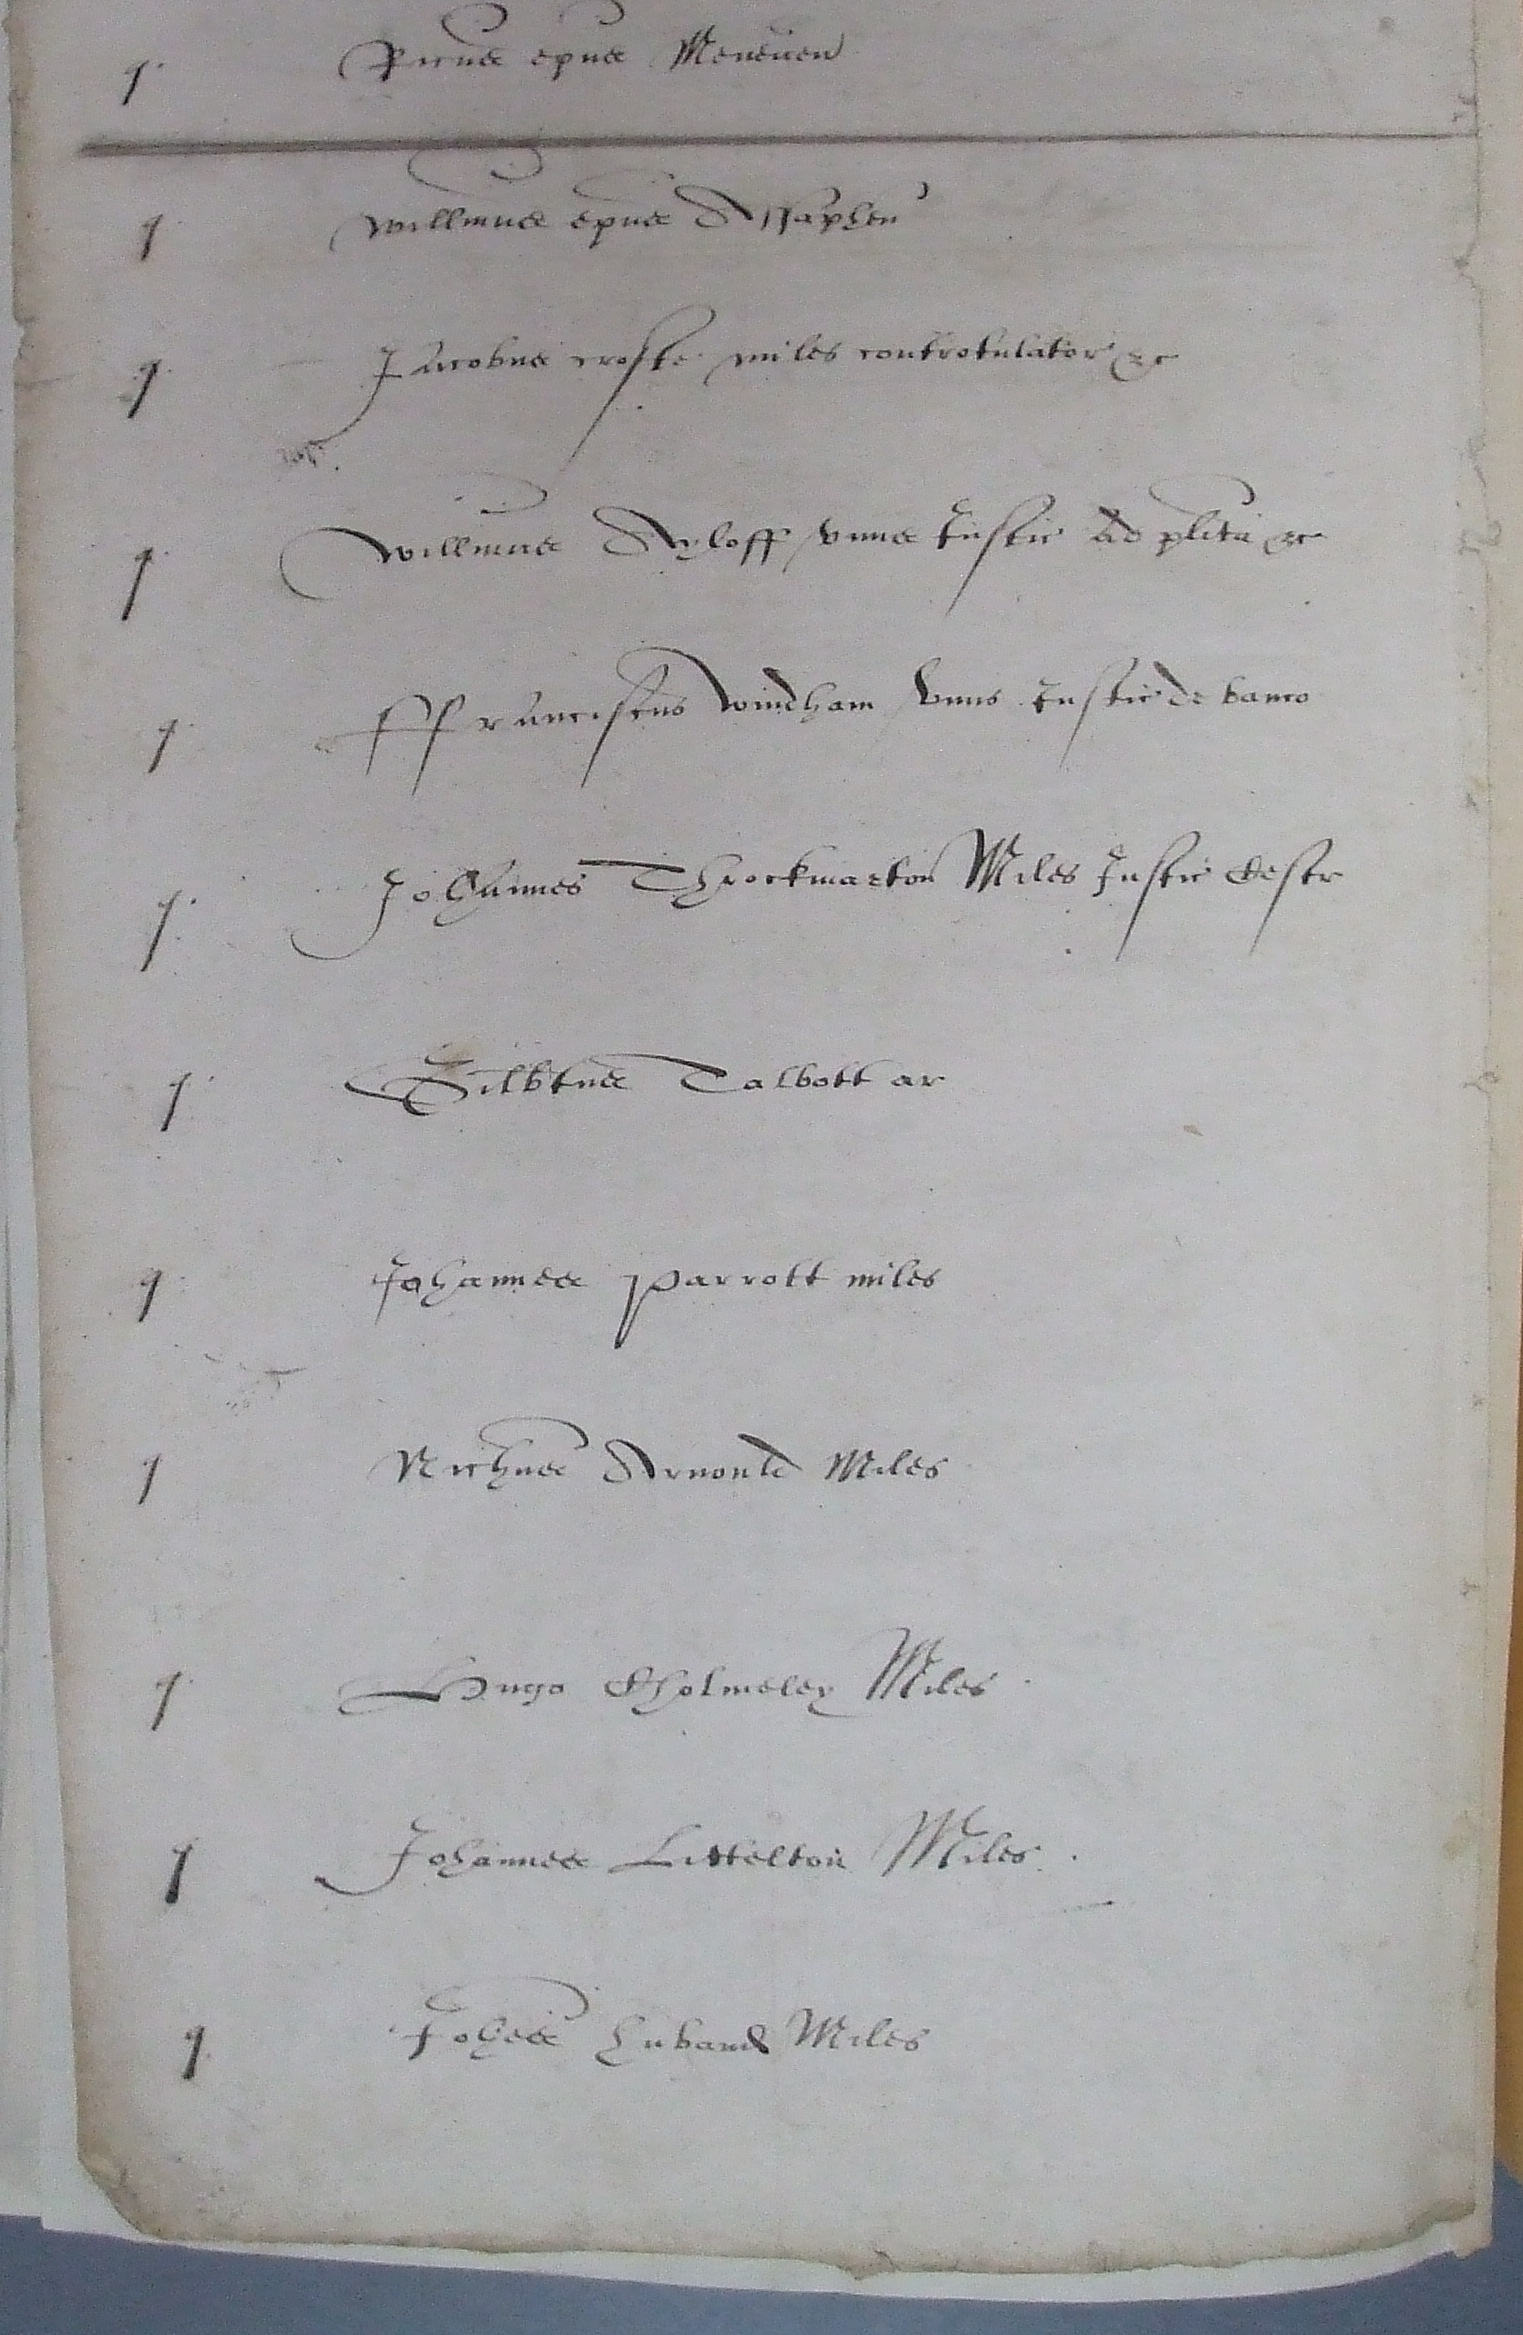 q Ricus epus Meneuen
q willmus epus Assaphen
q Jacobus crofte miles controtulator &c
q willmus Ayloff vnus Justic ad plita &c
q ffranciscus windham vnus Justic de banco
q Johannes Throckmarton Miles Justic Cestr
q Gilbtus Talbott ar
q Johannes Parrott miles
q Nichus Arnould Miles
q Hugo Cholmeley Miles
q Johannes Littelton Miles
q Johes huband Miles